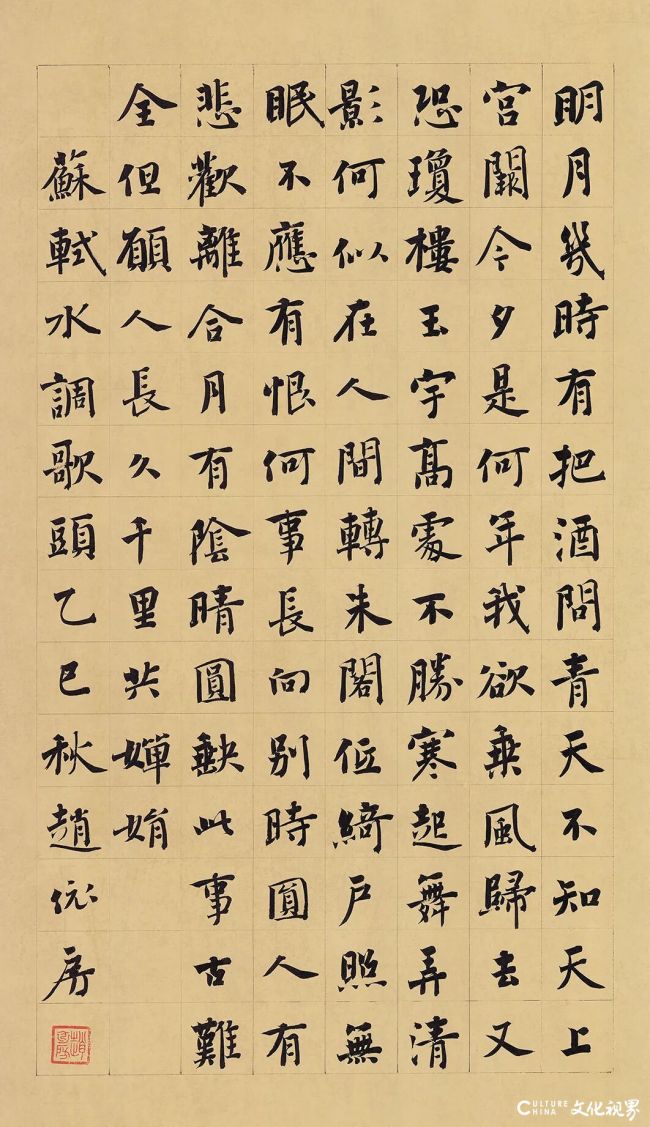 明月幾時有把酒問青天不知天上
宮闕今夕是何年我欲乘風歸去又
恐瓊樓玉宇髙處不勝寒起舞弄清
影何似在人間轉朱閣低綺戶照無
眠不應有恨何事長向別時圓人有
悲歡離合月有陰晴圓缺此事古難
全但願人長久千里共嬋娟
蘇軾水調歌頭乙巳秋趙房
CULTURE CHINA 文化视界